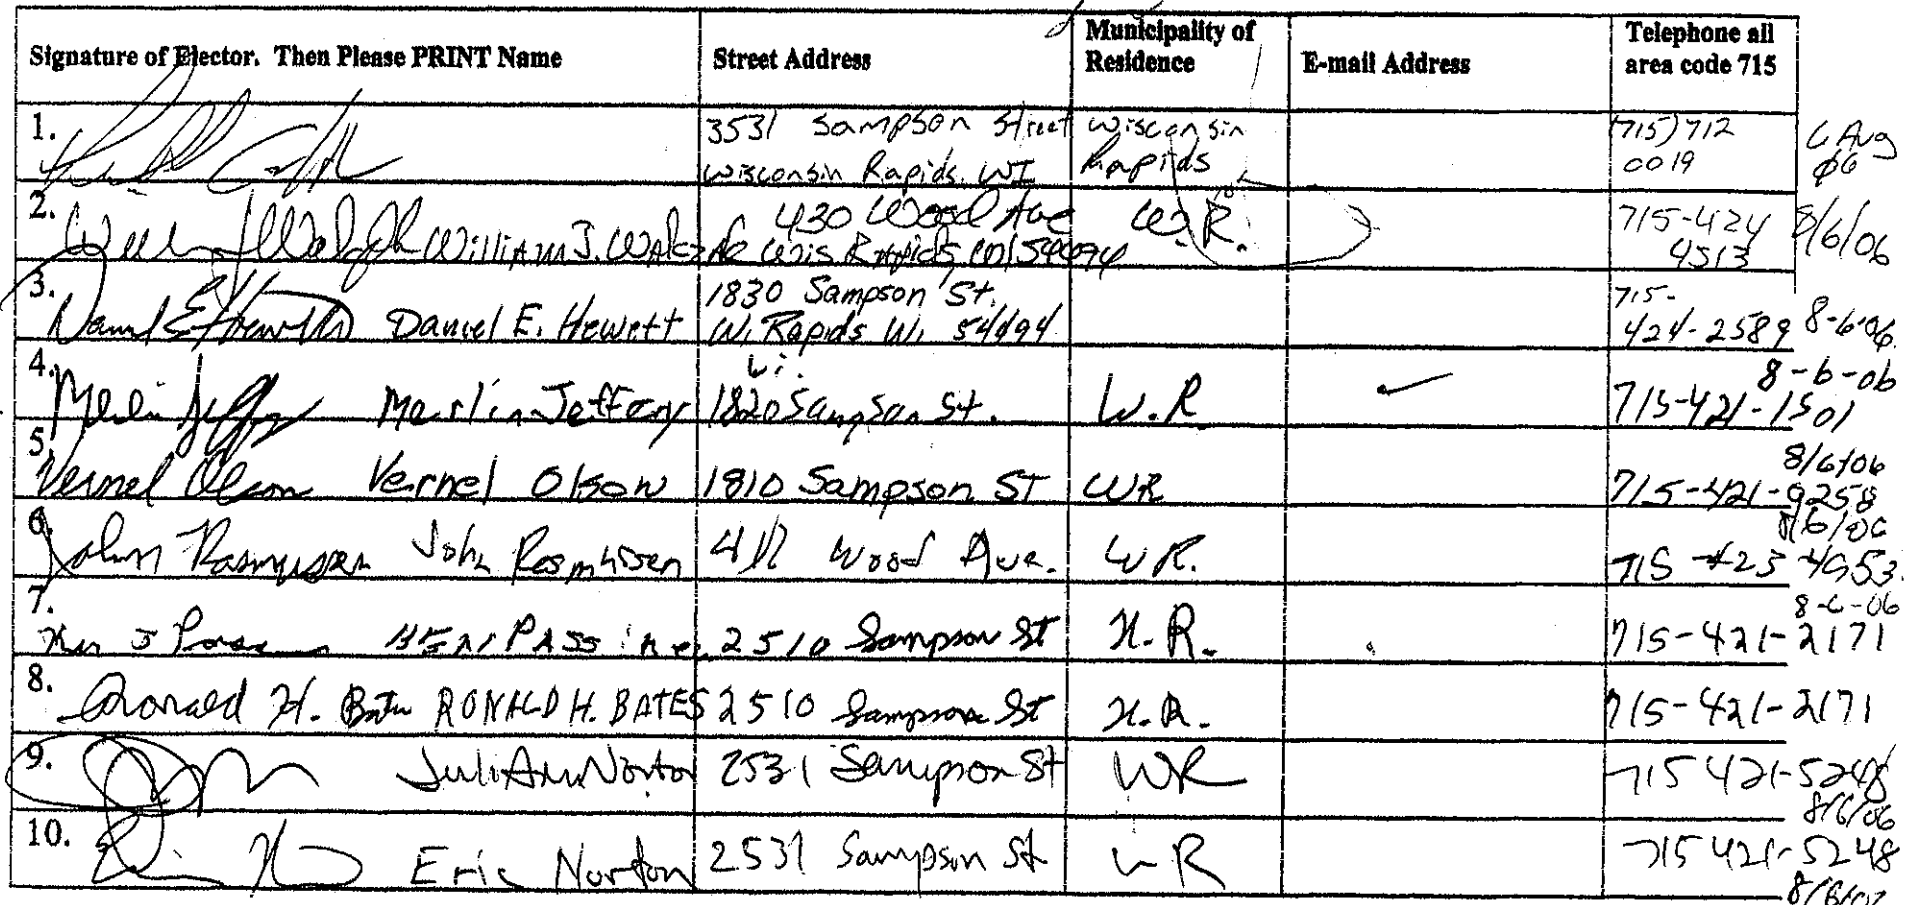 Signature of Elector. Then Please PRINT Name Street Address Municipality of Residence E-mail Address Telephone all area code 715
1. 3531 Sampson Street Wisconsin (715) 712 6 Aug
Wisconsin Rapids, WI Rapids 0019 06
2. 430 Wood Ave W.R. 715-424 8/6/06
William J. Wis Rapids, WI 54494 4513
3. 1830 Sampson St. 715-
Daniel E. Hewett W. Rapids Wi 54494 424-2589 8-6-06
4. Wi. 8-6-06
Merlin Jeffery 1820 Sampson St. W.R 715-421-1501
5. 8/6/06
Vernel Olson Vernel Olson 1810 Sampson ST WR 715-421-9258
6. 8/6/06
John Rasmussen John Rasmussen Wood Ave. WR. 715-423-4953
7. 8-6-06
2510 Sampson St W.R. 715-421-2171
8. Ronald H. Bates RONALD H. BATES 2510 Sampson St W.R. 715-421-2171
9. JuliAnn Norton 2531 Sampson St WR 715 421-5248
8/6/06
10. Eric Norton 2531 Sampson St WR 715 421-5248
8/6/06